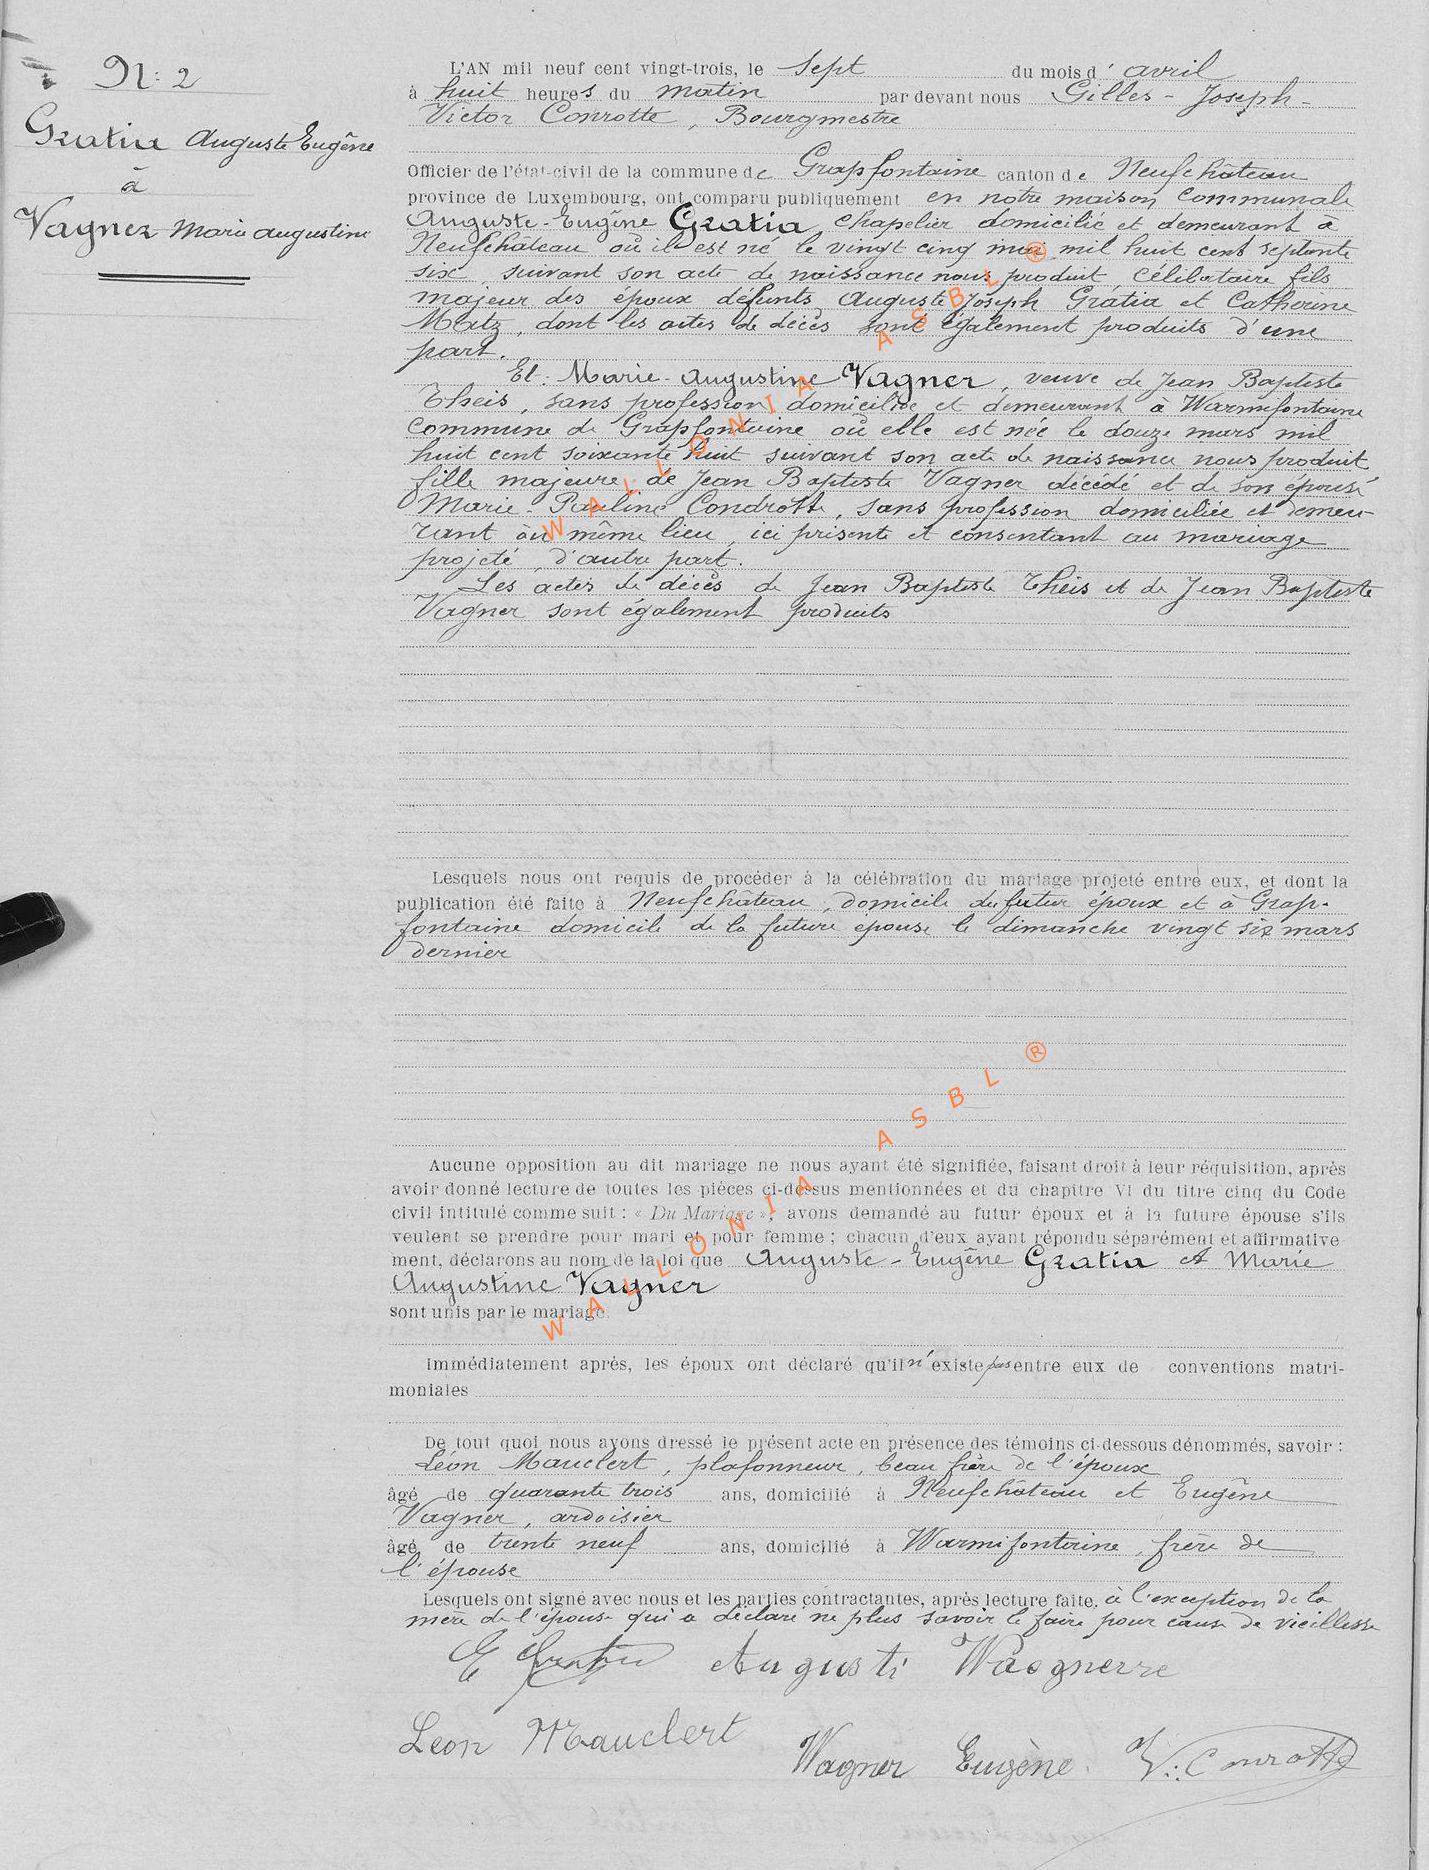 N: 2
Gratia Auguste Eugène
à
Vagner Marie Augustine
L'AN mil neuf cent vingt-trois, le sept du mois d' avril
à huit heures du matin par devant nous Gilles - Joseph -
Victor Conrotte, Bourgmestre
Officier de l'état-civil de la commune de Grapfontaine canton de Neufchâteau
province de Luxembourg, ont comparu publiquement en notre maison communale
Auguste-Eugène Gratia, chapelier domicilié et demeurant à
Neufchâteau où il est né le vingt cinq mai mil huit cent septante
six suivant son acte de naissance nous produit, célibataire fils
majeur des époux défunts Auguste Joseph Gratia et Catherine
Matz, dont les actes de décès sont également produits d'une
part.
Et: Marie-Augustine Vagner, veuve de Jean Baptiste
Theis, sans profession domiciliée et demeurant à Warmifontaine
commune de Grapfontaine où elle est née le douze mars mil
huit cent soixante huit suivant son acte de naissance nous produit
fille majeure de Jean Baptiste Vagner décédé et de son épouse
Marie-Pauline Condrotte, sans profession domiciliée et demeu-
rant au même lieu, ici présente et consentant au mariage
projeté, d'autre part.
Les actes de décès de Jean Baptiste Theis et de Jean Baptiste
Vagner sont également produits
Lesquels nous ont requis de procéder à la célébration du mariage projeté entre eux, et dont la
publication été faite à Neufchâteau, domicile du futur époux et à Grap-
fontaine domicile de la future épouse le dimanche vingt six mars
dernier
Aucune opposition au dit mariage ne nous ayant été signifiée, faisant droit à leur réquisition, après
avoir donné lecture de toutes les pièces ci-dessus mentionnées et du chapitre VI du titre cinq du Code
civil intitulé comme suit : « Du Mariage », avons demandé au futur époux et à la future épouse s'ils
veulent se prendre pour mari et pour femme ; chacun d'eux ayant répondu séparément et affirmative
ment, déclarons au nom de la loi que Auguste-Eugène Gratia et Marie
Augustine Vagner
sont unis par le mariage.
Immédiatement après, les époux ont déclaré qu'il n'existe pas entre eux de conventions matri-
moniales
De tout quoi nous avons dressé le présent acte en présence des témoins ci-dessous dénommés, savoir :
Léon Mauclert, plafonneur, beau frère de l'épouse
âgé de quarante trois ans, domicilié à Neufchâteau et Eugène
Vagner, ardoisier
âgé de trente neuf ans, domicilié à Warmifontaine, frère de
l'épouse
Lesquels ont signé avec nous et les parties contractantes, après lecture faite, à l'exception de la
mère de l'épouse qui a déclaré ne plus savoir le faire pour cause de vieillesse
E Gratia Augusti Waognerre
Leon Mauclert
Wagner Eugène. V: Conrotte
WALLONIA ASBL ®
WALLONIA ASBL ®